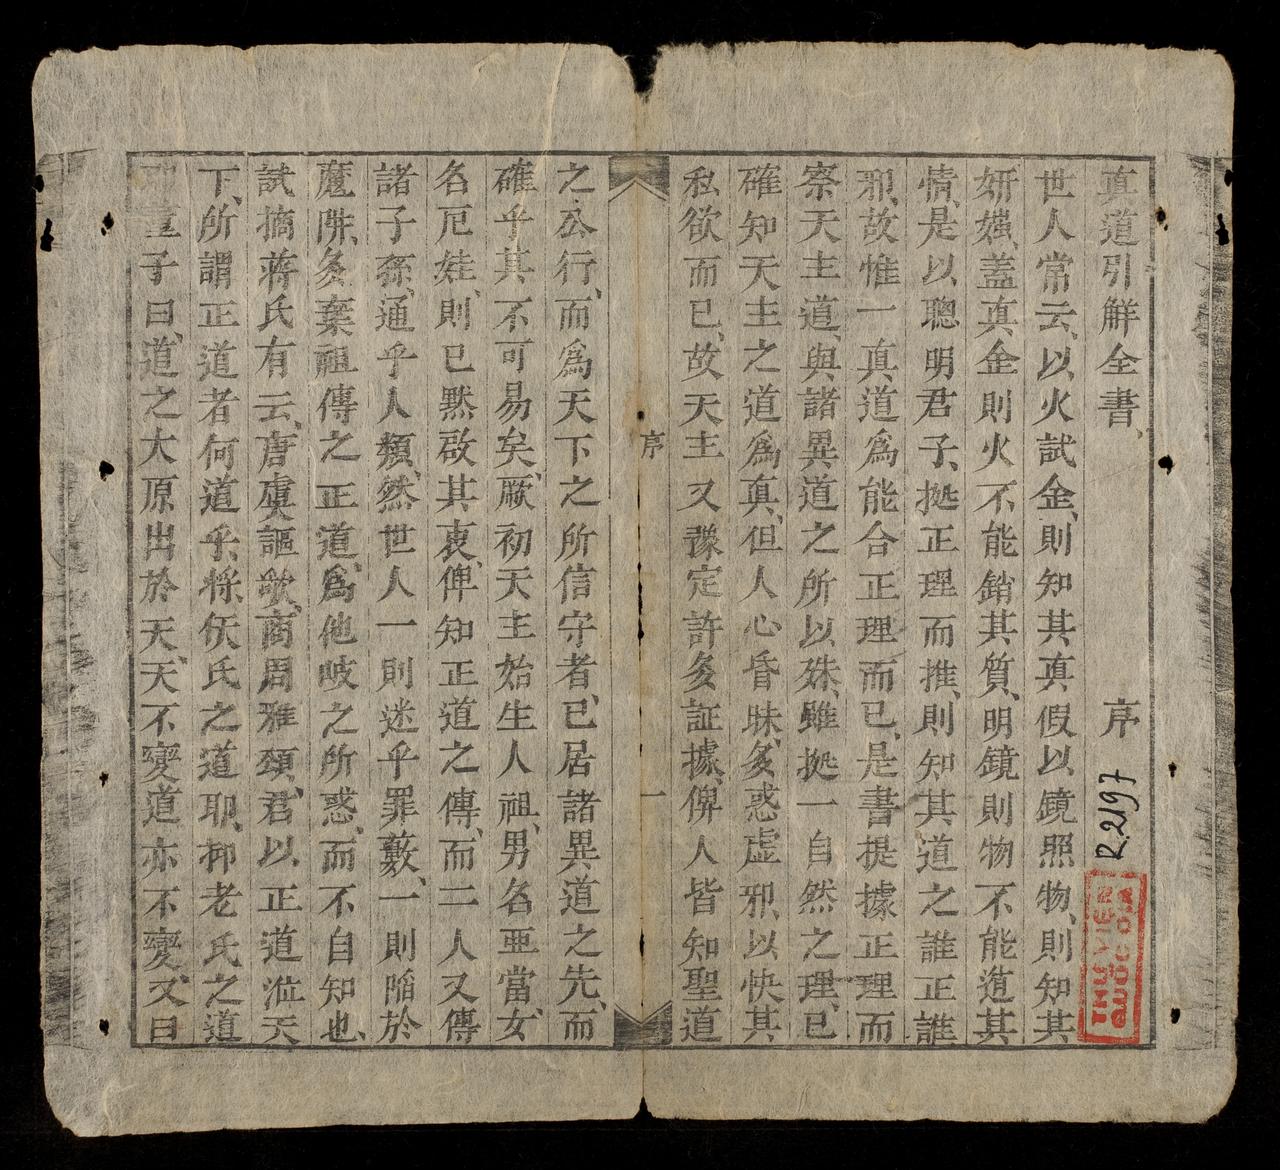 真道引解全書、 序
世人常云、以火試金、則知其真假以鏡照物、則知其
妍媸、蓋真金則火不能銷其質、明鏡則物不能遁其
情、是以聰明君子、㨿正理而推、則知其道之誰正誰
邪、故惟一真道爲能合正理而已、是書提據正理而
察天主道、與諸異道之所以殊、雖㨿一自然之理、已
確知天主之道爲真、但人心昏昧、多惑虛邪、以快其
私欲而已、故天主又豫定許多証據、俾人皆知聖道
序 一
之公行、而爲天下之所信守者、已居諸異道之先、而
確乎其不可易矣、厥初天主始生人祖、男名亞當、女
名厄娃、則已默啟其衷、俾知正道之傳、而二人又傳
諸子孫、通乎人類、然世人一則迷乎罪藪、一則陷於
魔阱、多棄祖傳之正道、爲他岐之所惑、而不自知也、
試摘蔣氏有云、唐虞謳歌、商周雅頌、君以正道涖天
下、所謂正道者何道乎、將佞氏之道耶、抑老氏之道
子曰、道之大原出於天、天不變道亦不變、又曰
R.2197
THƯ VIỆN
QUỐC GIA